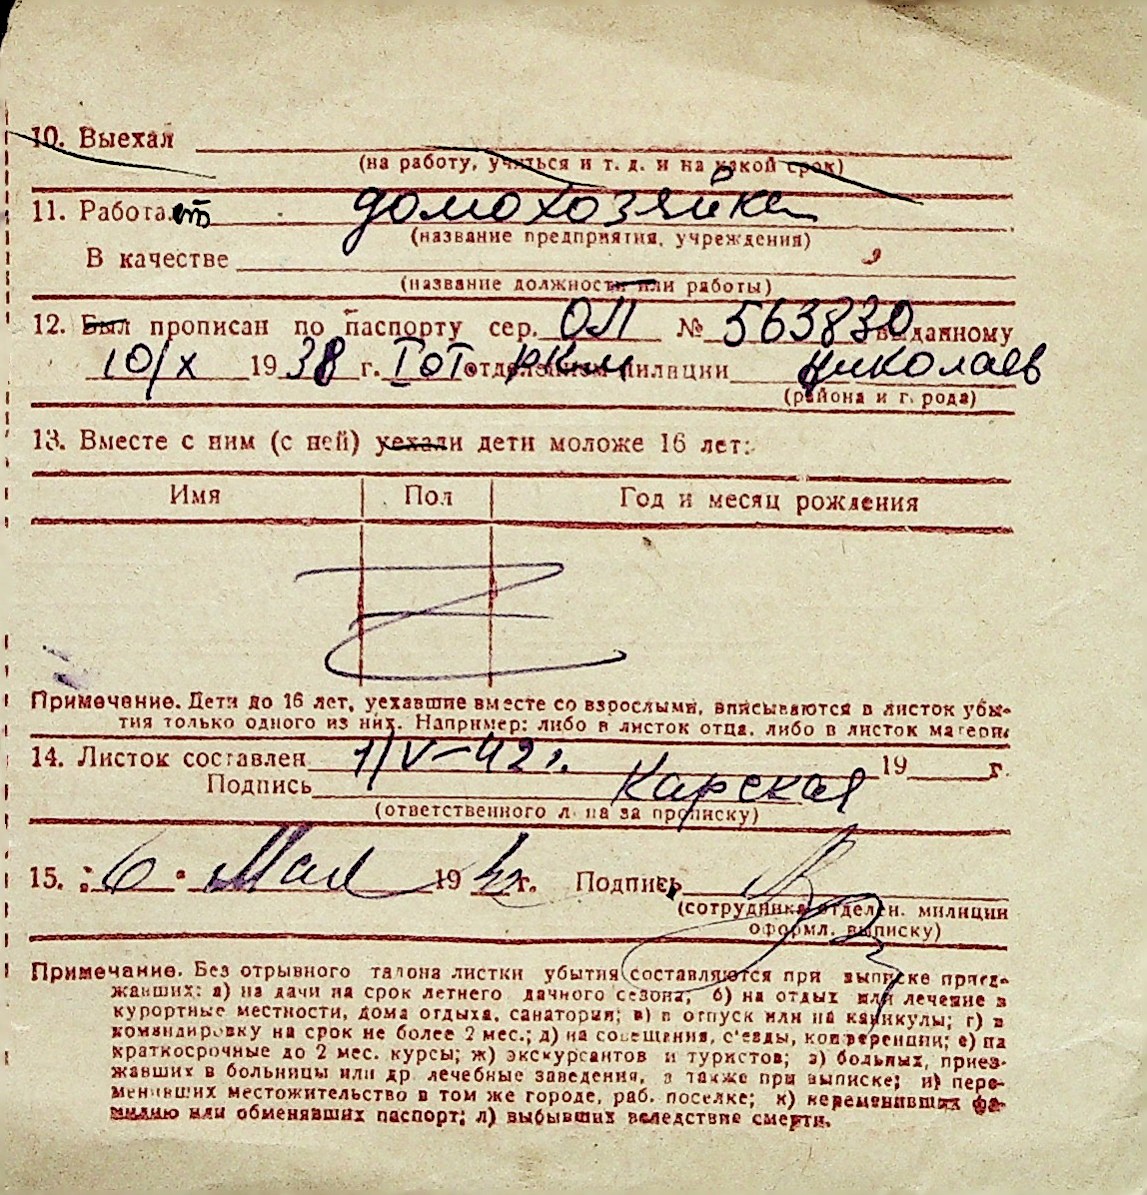 10. Выехал
(на работу, учиться и т. д. и на какой срок)
11. Работает домохозяйка
(название предприятия, учреждения)
В качестве
(название должности или работы)
12. Был прописан по паспорту сер. ОЛ № 563830 выданному
10/X 1938 г. I от РКМ отделением милиции Николаев
(района и города)
13. Вместе с ним (с ней) уехали дети моложе 16 лет:
Имя Пол Год и месяц рождения
Примечание. Дети до 16 лет, уехавшие вместе со взрослыми, вписываются в листок убы-
тия только одного из них. Например: либо в листок отца, либо в листок матери
14. Листок составлен 1/V-42 г. 19 г.
Подпись Карская
(ответственного лица за прописку)
15. "6" Мая 1942 г. Подпись
(сотрудника отделен. милиции
оформл. выписку)
Примечание. Без отрывного талона листки убытия составляются при выписке приез-
жавших: а) на дачи на срок летнего дачного сезона; б) на отдых или лечение в
курортные местности, дома отдыха, санатории; в) в отпуск или на каникулы; г) в
командировку на срок не более 2 мес.; д) на совещания, с'езды, конференции; е) на
краткосрочные до 2 мес. курсы; ж) экскурсантов и туристов; з) больных, приез-
жавших в больницы или др. лечебные заведения, а также при выписке; и) пере-
менивших местожительство в том же городе, раб. поселке; к) переменивших фа-
милию или обменявших паспорт; л) выбывших вследствие смерти.